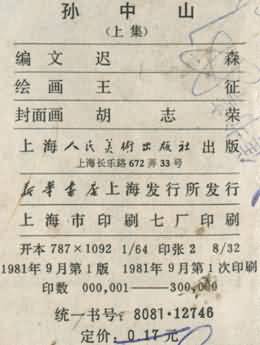 孙中山
(上集)
编文 迟森
绘画 王征
封面画 胡志荣
上海人民美术出版社出版
上海长乐路672弄33号
新华书店上海发行所发行
上海市印刷七厂印刷
开本787×1092 1/64 印张2 8/32
1981年9月第1版 1981年9月第1次印刷
印数 000,001—300,000
统一书号: 8081·12746
定价: 0.17元